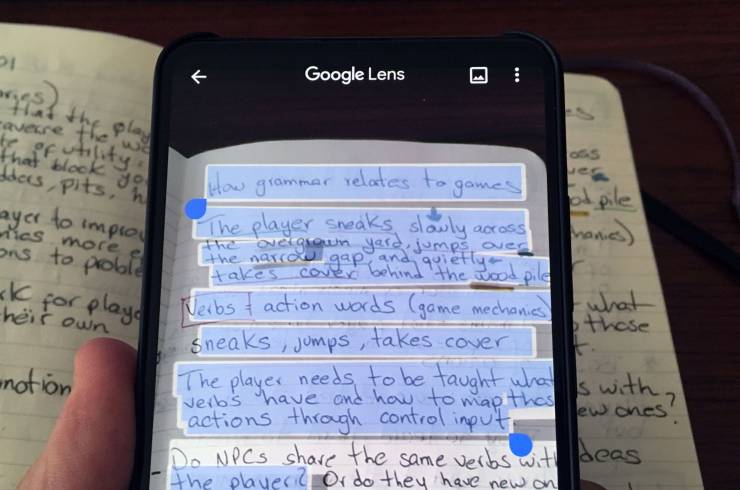 Google Lens
How grammar relates to games
The player sneaks slowly across
the overgrown yard, jumps over
the narrow gap and quietly
takes cover behind the wood pile
Verbs = action words (game mechanics)
sneaks, jumps, takes cover
The player needs to be taught what
verbs have and how to map thos
actions through control input
Do NPCs share the same verbs with
the player? Or do they have new on
that the play
te of utility
that block yo
dders, pits, h
ayer to improv
nics more e
ons to proble
rk for playe
heir own
notion
es
oss
ver
od pile
hanics)
what
those
t.
s with
ew ones?
deas